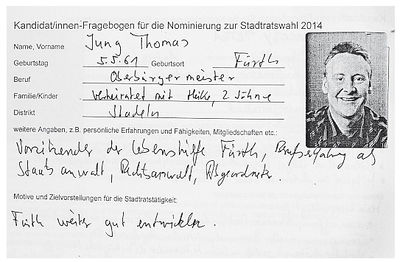 Kandidat/innen-Fragebogen für die Nominierung zur Stadtratswahl 2014
Name, Vorname Jung Thomas
Geburtstag 5.5.61 Geburtsort Fürth
Beruf Oberbürgermeister
Familie/Kinder verheiratet mit 2 Söhne
Distrikt Stadeln
weitere Angaben, z.B. persönliche Erfahrungen und Fähigkeiten, Mitgliedschaften etc.:
Vorsitzender der Lebenshilfe Fürth, Berufserfahrung als
Staatsanwalt, Rechtsanwalt, Abgeordneter.
Motive und Zielvorstellungen für die Stadtratstätigkeit:
Fürth weiter gut entwickeln.